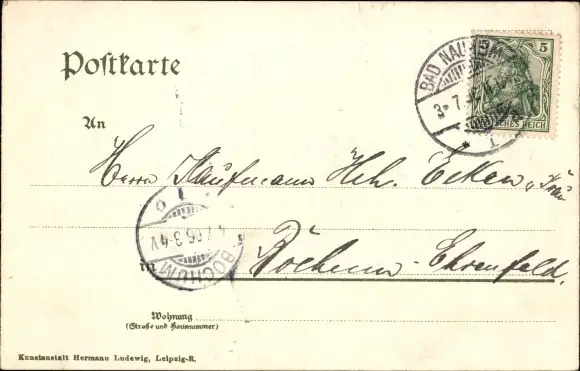 Postkarte
5
BAD NAUHEIM
3 7
1
DEUTSCHES REICH
An
Herrn Kaufmann Hch. Ecken u. Frau
4.7.06.3-4V
BOCHUM
in Bochum-Ehrenfeld.
Wohnung
(Straße und Hausnummer)
Kunstanstalt Hermann Ludewig, Leipzig-R.